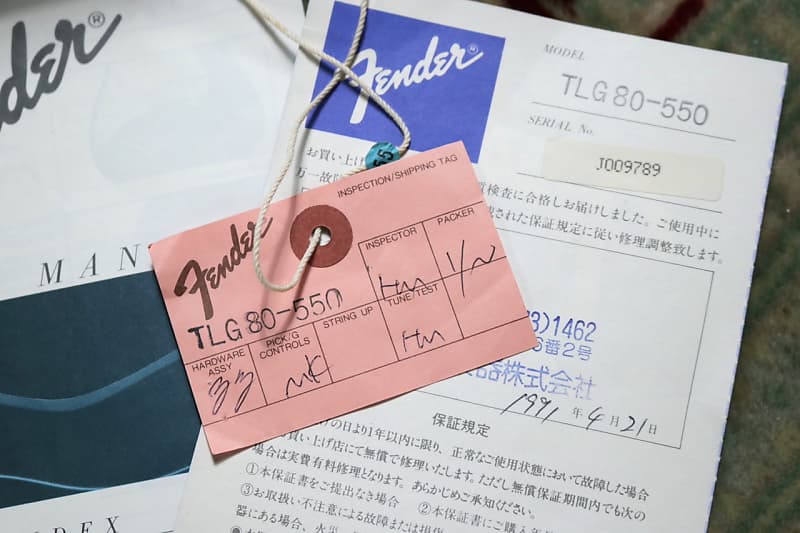 Fender®
MAN
DEX
Fender®
MODEL
TLG80-550
SERIAL No.
J009789
お買い上げ
万一故
質検査に合格しお届けしました。ご使用中に
された保証規定に従い修理調整致します。
)1462
6番2号
器株式会社
1991年4月21日
保証規定
の日より1年以内に限り、正常なご使用状態において故障した場合
買い上げ店にて無償で修理いたします。ただし無償保証期間内でも次の
場合は実費有料修理となります。あらかじめご承知ください。
①本保証書をご提出なき場合 ②本保証書にご購入年
③お取扱い不注意による故障または損傷
器にある場合、火災
55
INSPECTION/SHIPPING TAG
Fender
TLG80-550
INSPECTOR
PACKER
HARDWARE ASSY
PICK/G CONTROLS
STRING UP
TUNE/TEST
MK